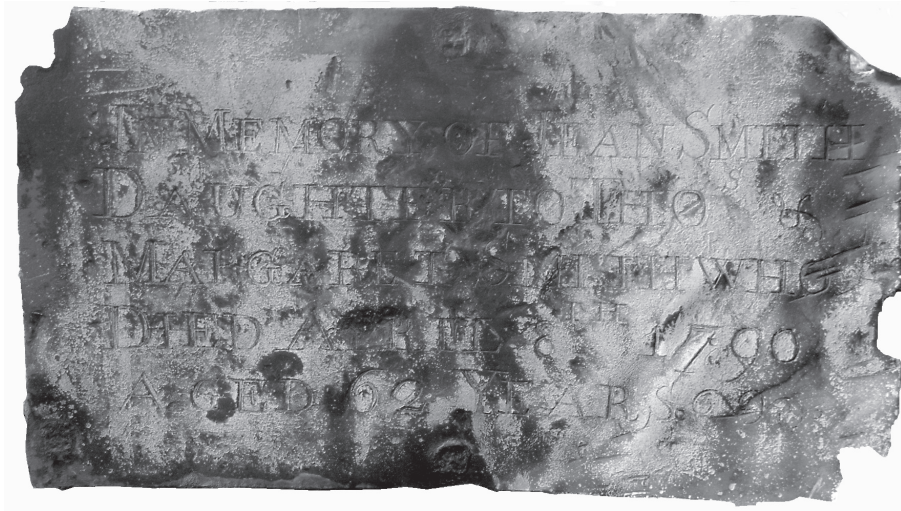 IN MEMORY OF JEAN SMITH
DAUGHTER TO THOS &
MARGARET SMITH WHO
DIED APRIL 8TH 1790
AGED 62 YEARS